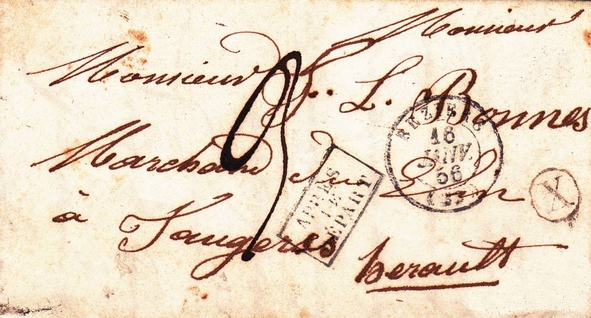 Monsieur
Monsieur F. L. Bonnes
Marchand
à Faugeres
herault
BEZIERS
16
JANV.
56
APRÈS
LE
DÉPART
X